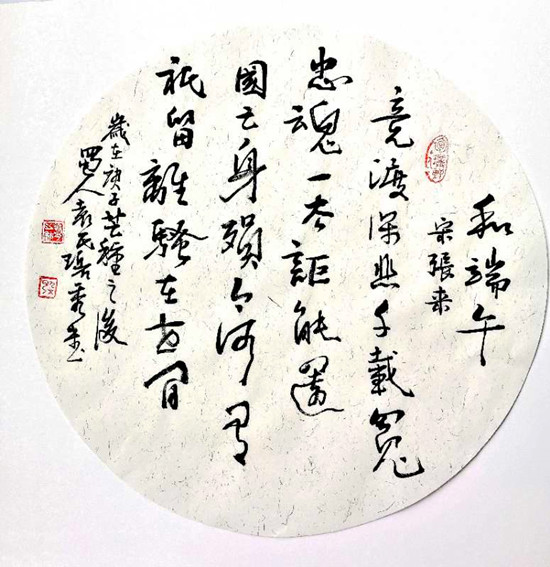 和端午
宋張耒
竞渡深悲千載冤
忠魂一去詎能還
國亡身殞今何有
祇留離騷在世間
歲在庚子芒種之後
蜀人袁